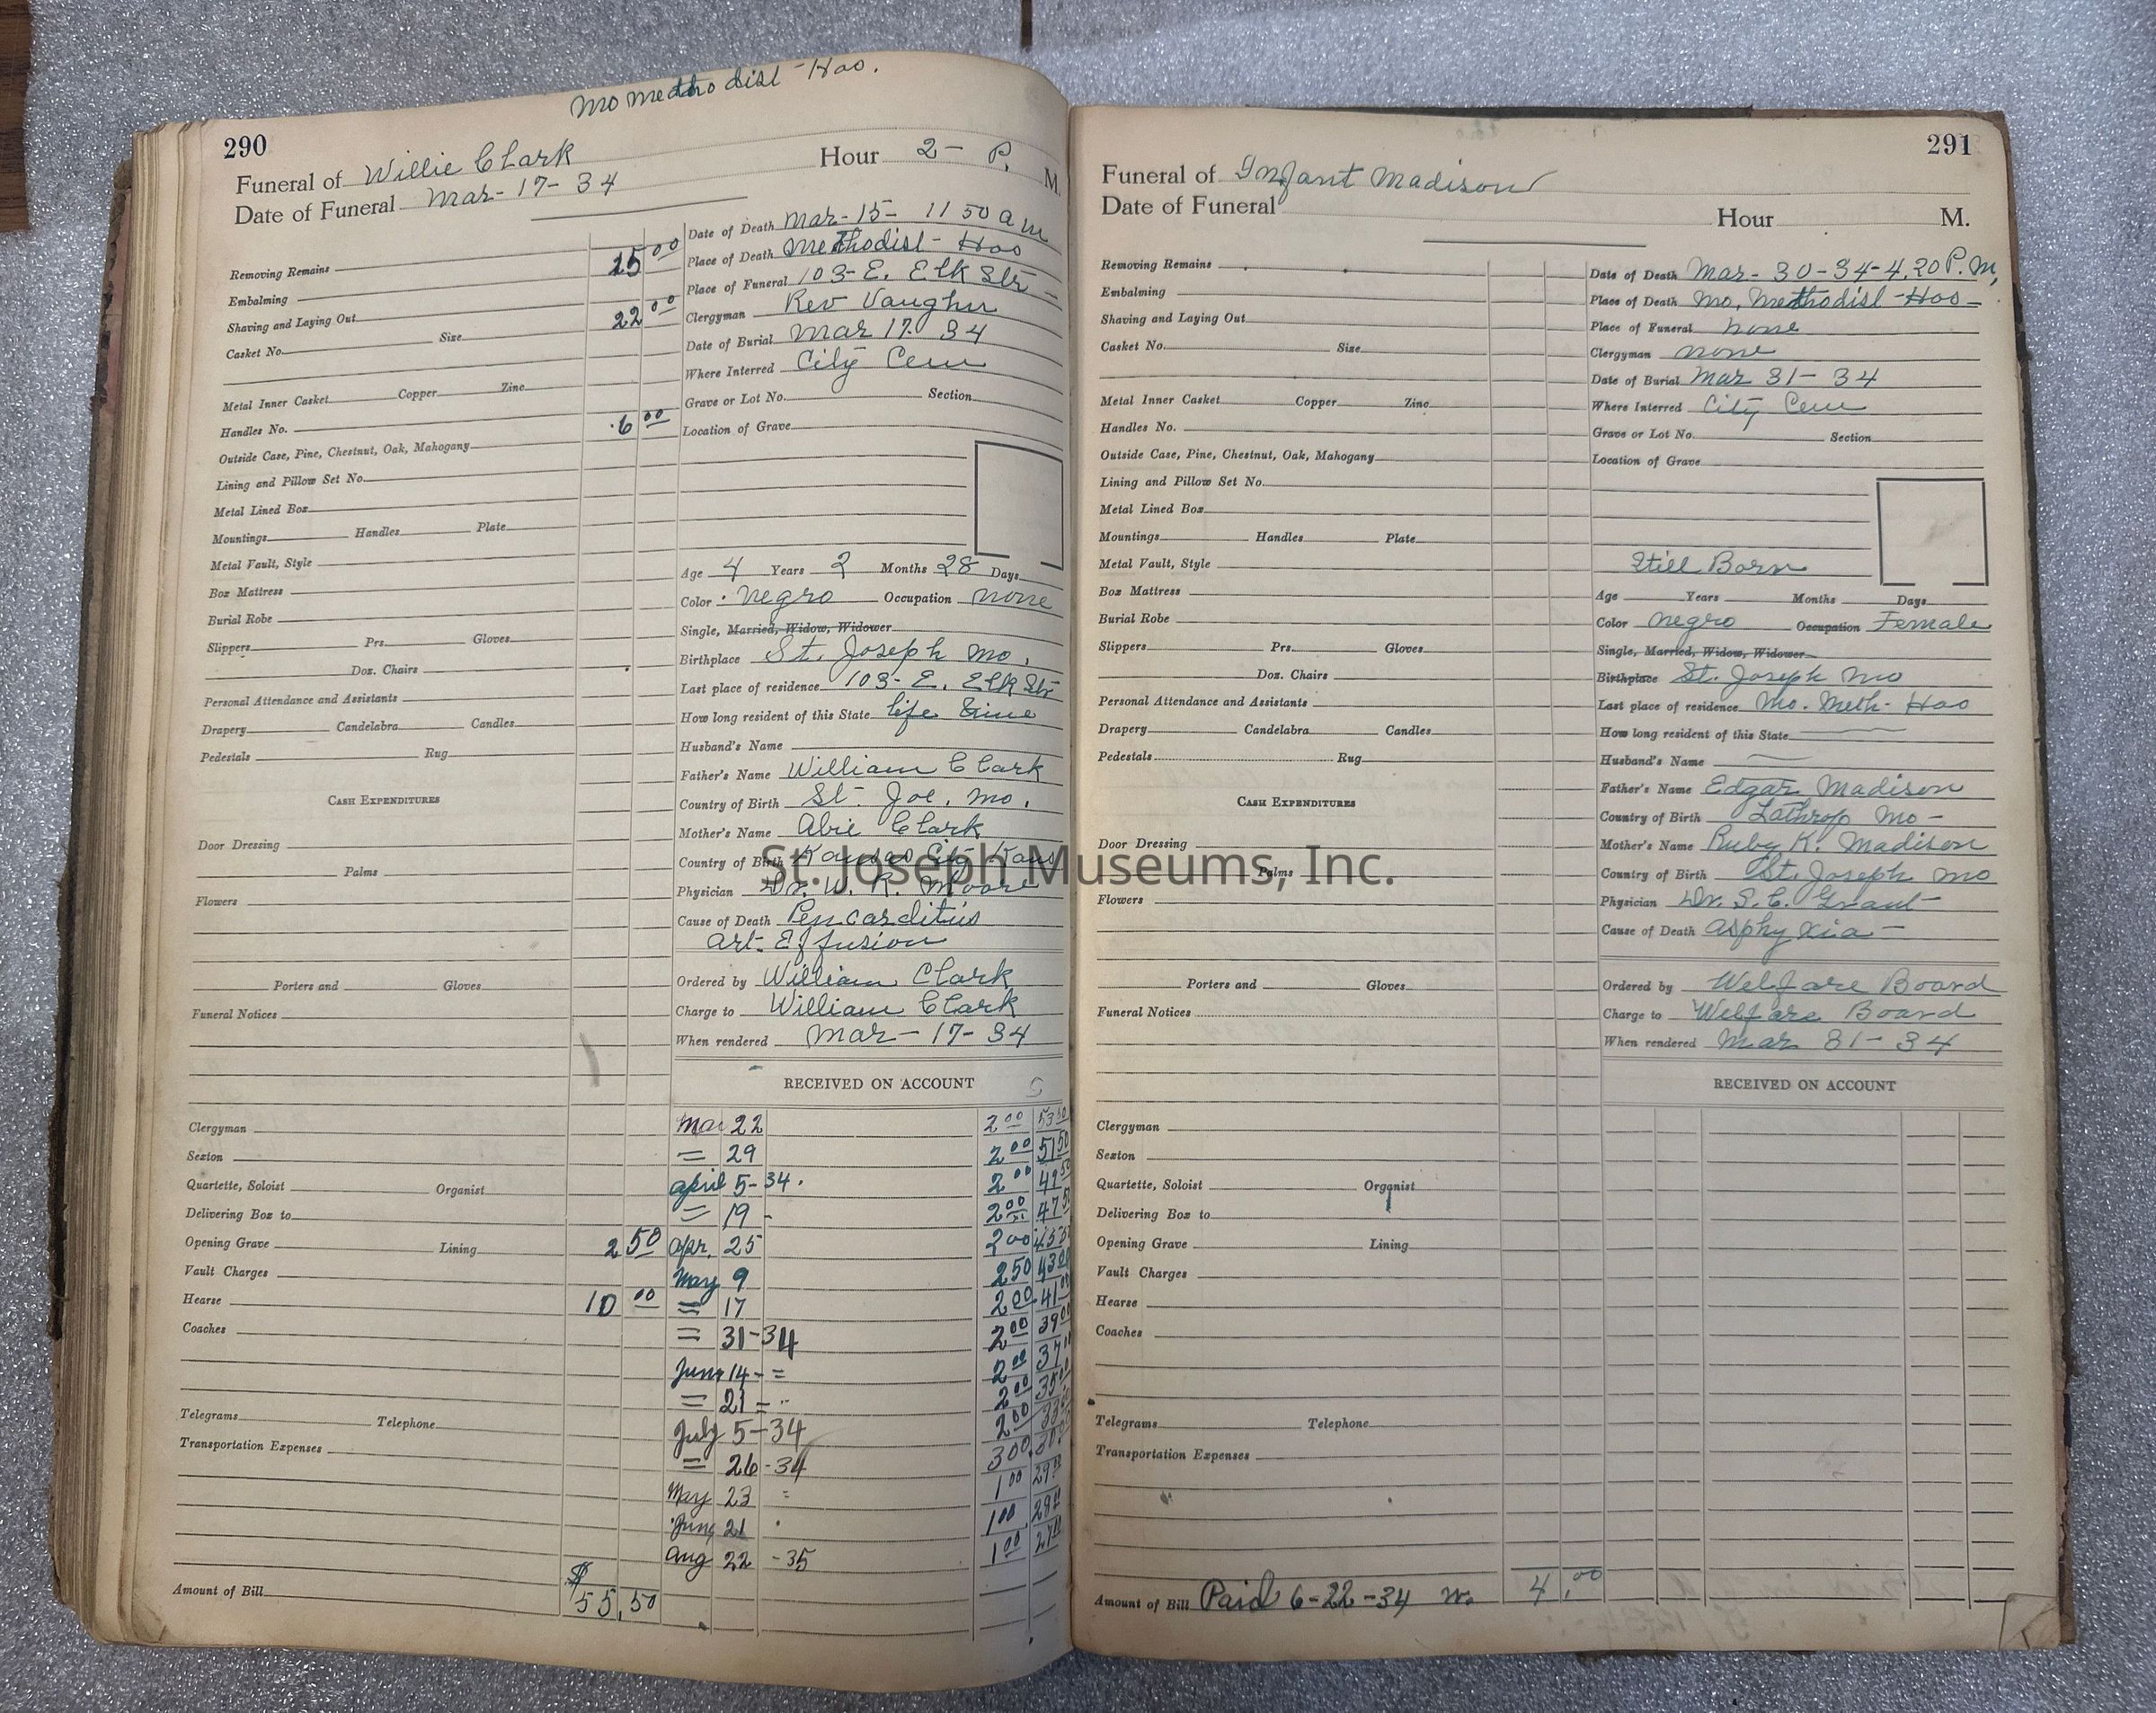 Mo Methodist - Hos.
290
Funeral of Willie Clark Hour 2 - P. M.
Date of Funeral Mar - 17 - 34
Removing Remains
Embalming 15 00
Shaving and Laying Out
Casket No. Size 22 00
Metal Inner Casket Copper Zinc
Handles No.
Outside Case, Pine, Chestnut, Oak, Mahogany 6 00
Lining and Pillow Set No.
Metal Lined Box
Mountings Handles Plate
Metal Vault, Style
Box Mattress
Burial Robe
Slippers Prs. Gloves
Doz. Chairs
Personal Attendance and Assistants
Drapery Candelabra Candles
Pedestals Rug
CASH EXPENDITURES
Door Dressing
Palms
Flowers
Porters and Gloves
Funeral Notices
Clergyman
Sexton
Quartette, Soloist Organist
Delivering Box to
Opening Grave Lining 2 50
Vault Charges
Hearse 10 00
Coaches
Telegrams Telephone
Transportation Expenses
Amount of Bill $ 55.50
Date of Death Mar - 15 - 11 50 a m
Place of Death Methodist - Hos
Place of Funeral 103 - E. Elk Str -
Clergyman Rev Vaughn
Date of Burial Mar 17 34
Where Interred City Cem
Grave or Lot No. Section
Location of Grave
Age 4 Years 2 Months 28 Days
Color Negro Occupation none
Single, Married, Widow, Widower
Birthplace St. Joseph Mo.
Last place of residence 103 - E. Elk Str
How long resident of this State life time
Husband's Name
Father's Name William Clark
Country of Birth St. Joe. Mo.
Mother's Name Abie Clark
Country of Birth Kansas City Kans
Physician Dr. W. R. Moore
Cause of Death Pericarditis
Art- Effusion
Ordered by William Clark
Charge to William Clark
When rendered Mar - 17 - 34
RECEIVED ON ACCOUNT
Mar 22 2 00 53 50
= 29 2 00 51 50
april 5 - 34. 2 00 49 50
= 19 - 2 00 47 50
apr. 25 2 00 45 50
May 9 2 50 43 00
= 17 2 00 41 00
= 31 - 34 2 00 39 00
June 14 - = 2 00 37 00
= 21 = 2 00 35 00
July 5 - 34 2 00 33 00
= 26 - 34 3 00 30 00
May 23 = 1 00 29 00
June 21 1 00 28 00
Aug 22 - 35 1 00 27 00
291
Funeral of Infant Madison
Date of Funeral Hour M.
Removing Remains
Embalming
Shaving and Laying Out
Casket No. Size
Metal Inner Casket Copper Zinc
Handles No.
Outside Case, Pine, Chestnut, Oak, Mahogany
Lining and Pillow Set No.
Metal Lined Box
Mountings Handles Plate
Metal Vault, Style
Box Mattress
Burial Robe
Slippers Prs. Gloves
Doz. Chairs
Personal Attendance and Assistants
Drapery Candelabra Candles
Pedestals Rug
CASH EXPENDITURES
Door Dressing
Palms
Flowers
Porters and Gloves
Funeral Notices
Clergyman
Sexton
Quartette, Soloist Organist
Delivering Box to
Opening Grave Lining
Vault Charges
Hearse
Coaches
Telegrams Telephone
Transportation Expenses
Amount of Bill Paid 6-22-34 W. 4.00
Date of Death Mar - 30 - 34 - 4.20 P. M,
Place of Death Mo. Methodist - Hos -
Place of Funeral none
Clergyman none
Date of Burial Mar 31 - 34
Where Interred City Cem
Grave or Lot No. Section
Location of Grave
Still Born
Age Years Months Days
Color Negro Occupation Female
Single, Married, Widow, Widower
Birthplace St. Joseph Mo
Last place of residence Mo. Meth - Hos
How long resident of this State
Husband's Name
Father's Name Edgar Madison
Country of Birth Lathrop Mo -
Mother's Name Ruby K. Madison
Country of Birth St. Joseph Mo
Physician Dr. S. E. Grant
Cause of Death Asphyxia -
Ordered by Welfare Board
Charge to Welfare Board
When rendered Mar 31 - 34
RECEIVED ON ACCOUNT
St. Joseph Museums, Inc.